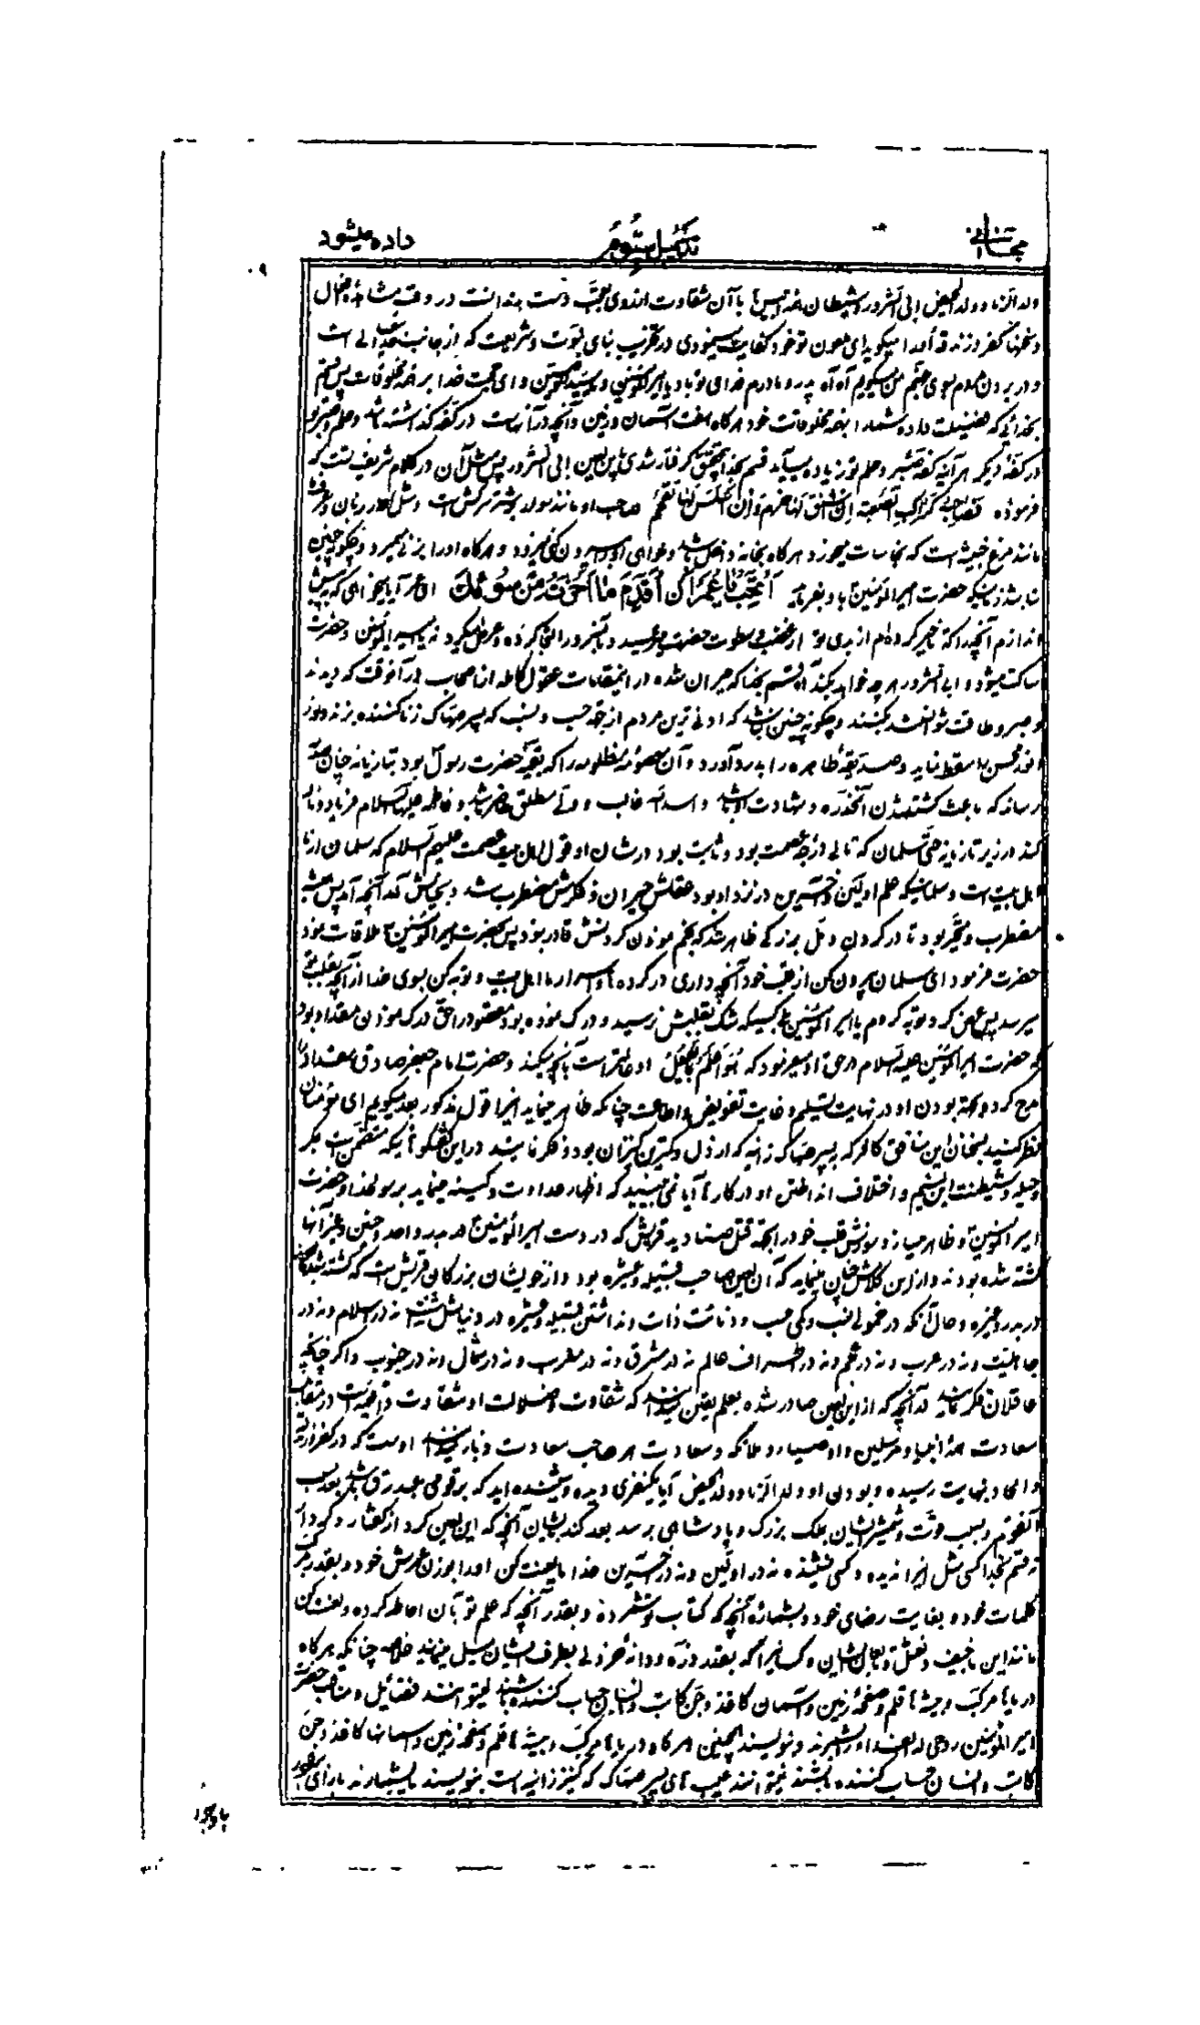 تکمیل سوم
داده میشود
ولد الزنا و ولد الحیض ابی الشرور شیطان با آن شقاوت از وی تعجب دست بدندان در وقت مشاهده
و سخنهای کفر و زندقه او را میگوید ای ملعون تو خود کفایت مینمودی در تخریب بنای نبوت و شریعت که از جانب است
و در بردن مردم بسوی جهنم من میگویم آه آه پدر و مادرم فدای تو باد یا امیر المؤمنین و ای حجت خدا بر همه مخلوقات پس قسم
بخدائی که فضیلت داده شما را بهمه مخلوقات خود هر گاه هفت آسمان و زمین و آنچه در آنهاست در کفه گذاشته شود و حلم
در کفه دیگر هر آینه کفه حلم تو زیاده میآید قسم بخدا بتحقیق گرفتار شدی باین لعین ابی الشرور پس مثل آن در کلام شریف تست که
فرموده فصاحبها کراکب الصعبة ان اشنق لها خرم و ان اسلس لها تقحم صاحب او مانند مولد بر شتر سرکش است و مثل
مانند مرغ خبیثه است که نجاسات میخورد هر گاه بخانه داخل شد و هر گاه او را بزنی میمیرد و چگونه چنین
نباشد زمانیکه حضرت امیر المؤمنین باو بفرماید ای عمر آیا میخواهی که پیش
اندازم آنچه را که تاخیر کرده‌ام از بدی تو از غضب و سطوت حضرت میترسید و بآنسرور التجا کرده و عرض میکرد نه یا امیر المؤمنین و حضرت
ساکت میشود و ابی الشرور هر چه خواهد بکند قسم بخدا که حیران شده در این مقامات عقول کامله از اصحاب در آنوقت که دیدند
و صبر و طاقت نتوانستند بکنند و چگونه چنین نباشد که ادنی ترین مردم از جهت حسب و نسب که پسر صهاک زناکننده بزند در
و محسن را سقط نماید و صدیقه طاهره را بدرد آورد و آن معصومه مظلومه را که بقیه حضرت رسول بود بتازیانه چنان صدمه
رساند که باعث کشته شدن آنحضرت و شهادت او باشد و اسد الله غالب و ولی مطلق حاضر باشد و فاطمه علیها السلام فریاد و ناله
کند در زیر تازیانه حتی سلمان که تالی درجه عصمت بود و ثابت بود در شان او قول اهل بیت عصمت علیهم السلام که سلمان از ما
اهل بیت است و سلمانیکه علم اولین و آخرین در نزد او بود عقلش حیران و فکرش مضطرب شد
مضطرب و متحیر بود تا در گردن دمل بزرگی ظاهر شد که بخم نمودن گردنش قادر نبود پس بحضرت امیر المؤمنین ملاقات نمود
حضرت فرمود ای سلمان بیرون کن از قلب خود آنچه داری در کرده‌ها و اسرار ما اهل بیت و توبه کن بسوی خدا از آنچه بقلبت
میرسد پس عرض کرد توبه کردم یا امیر المؤمنین کسیکه شک بقلبش نرسید و درک نموده بود مقصود را حق درک نمودن مقداد بود
که حضرت امیر المؤمنین علیه السلام در حق او میفرمود که هو اعلم بما یفعل او داناتر است بآنچه میکند و حضرت امام جعفر صادق مقداد را
مدح کرده بجهة بودن او در نهایت تسلیم و غایت تفویض و اطاعت چنانکه ظاهر مینماید اینرا قول مذکور بعد میگویم ای مؤمنان
نظر کنید بسخنان این منافق کافر که پسر صهاک زانیه که ارذل و کمترین کنیزان بود و فکر نمائید در این گفتگوها یکه متضمن است مکر
و حیله و شیطنت این لئیم و اختلاف انداختن او در کارها آیا نمی بینید که اظهار عداوت و کینه مینماید بر رسولخدا و حضرت
امیر المؤمنین و ظاهر میسازد سوزش قلب خود را بجهة قتل صنادید قریش که در دست امیر المؤمنین در بدر و احد و حنین و غیر آنها
کشته شده بودند و از این کلامش چنان مینماید که آن لعین صاحب قبیله و عشیره بود و از خویشان بزرگان قریش است که کشته شدگان
در بدر و غیره و حال آنکه در خمول نسب و کمی حسب و دنائت ذات و نداشتن قبیله و عشیره در دنیا مثلش نیست نه در اسلام و نه در
جاهلیت و نه در عرب و نه در عجم و نه در اطراف عالم نه در مشرق و نه در مغرب و نه در شمال و نه در جنوب و اگر چنانچه
عاقلان فکر نمایند در آنچه که از این لعین صادر شده بعلم یقین میدانند که شقاوت و ضلالت او شقاوت در مقابل
سعادت همه انبیاء و مرسلین و اوصیاء و ملائکه و سعادت هر صاحب سعادت اوست که در کفر و زندقه
و الحاد بنهایت رسیده و بودن او ولد الزنا و ولد الحیض آیا یکنفری دیده و شنیده‌اید که بر قومی عبد رق باشد بعد بسبب
آنقوم و بسبب قوت و شمشیر ایشان بملک بزرگ و پادشاهی برسد بعد کند بایشان آنچه که این لعین کرد از گفتار و کردار
نه قسم بخدا کسی مثل اینرا ندیده و کسی نشنیده نه در اولین و نه در آخرین خدایا لعنت کن او را بوزن عرش خود و بقدر
کلمات خود و بغایت رضای خود و بشماره آنچه که کتاب تو شمرده و بقدر آنچه که علم تو بآن احاطه کرده و لعنت کن
مانند این و کسانیرا که بقدر ذره و دانه خردلی بطرف ایشان میل مینمایند خلاصه چنانکه هر گاه
دریاها مرکب و بیشه‌ها قلم و صفحه زمین و آسمان کاغذ و جن کاتب و انسان حساب کننده باشند نمیتوانند فضائل و مناقب حضرت
امیر المؤمنین روحی له الفداء را بشمرند و بنویسند همچنین هر گاه دریاها مرکب و بیشه‌ها قلم و صفحه زمین و آسمانها کاغذ و جن
کاتب و انسان حساب کننده باشند نمیتوانند عیبهای پسر صهاک که کنیز زانیه است بنویسند یا بشمارند